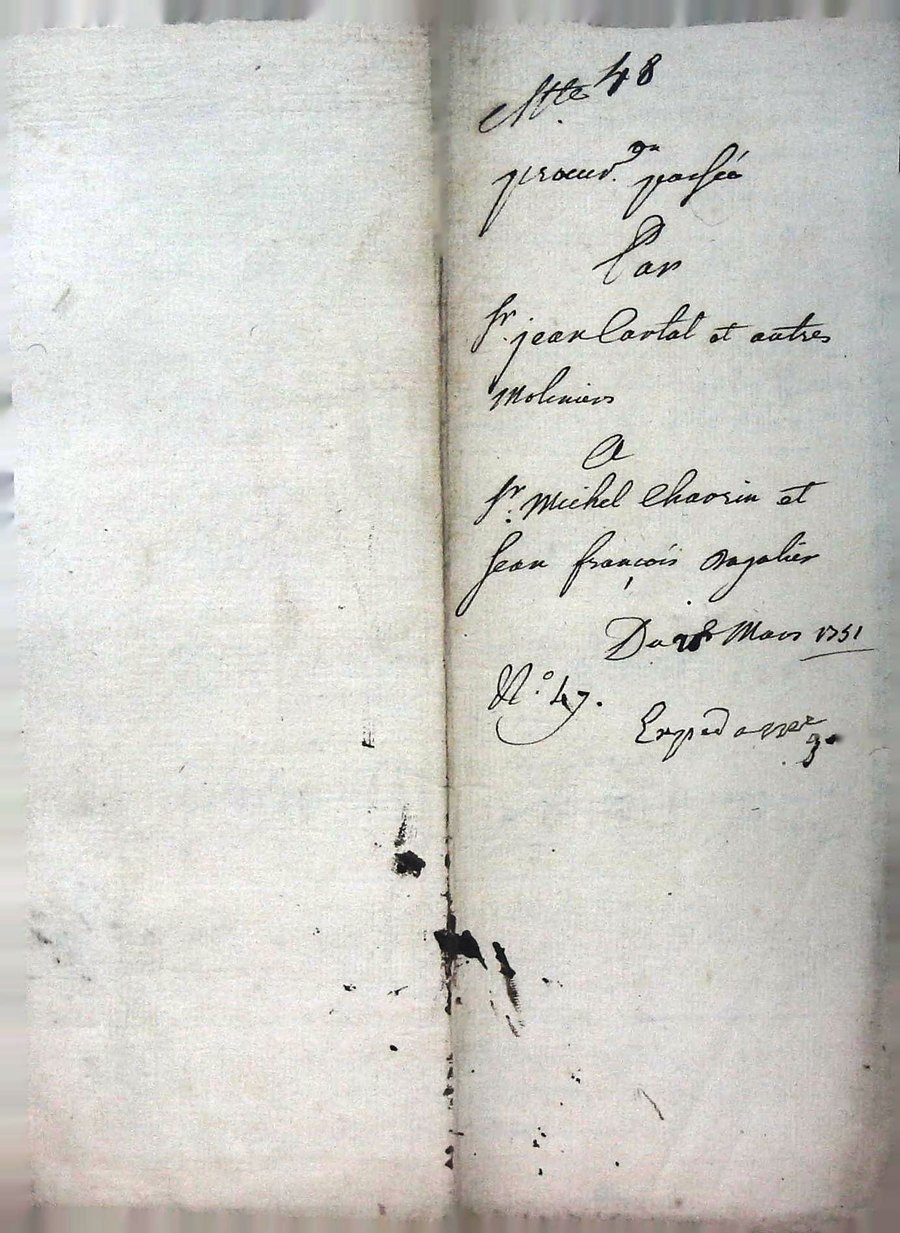 48
procur.on passée
Par
Sr. jean Cartal et autres
Moliniers
A
Sr. Michel Chavrin et
Jean françois Ragalier
Du 28 Mars 1751
No. 47.